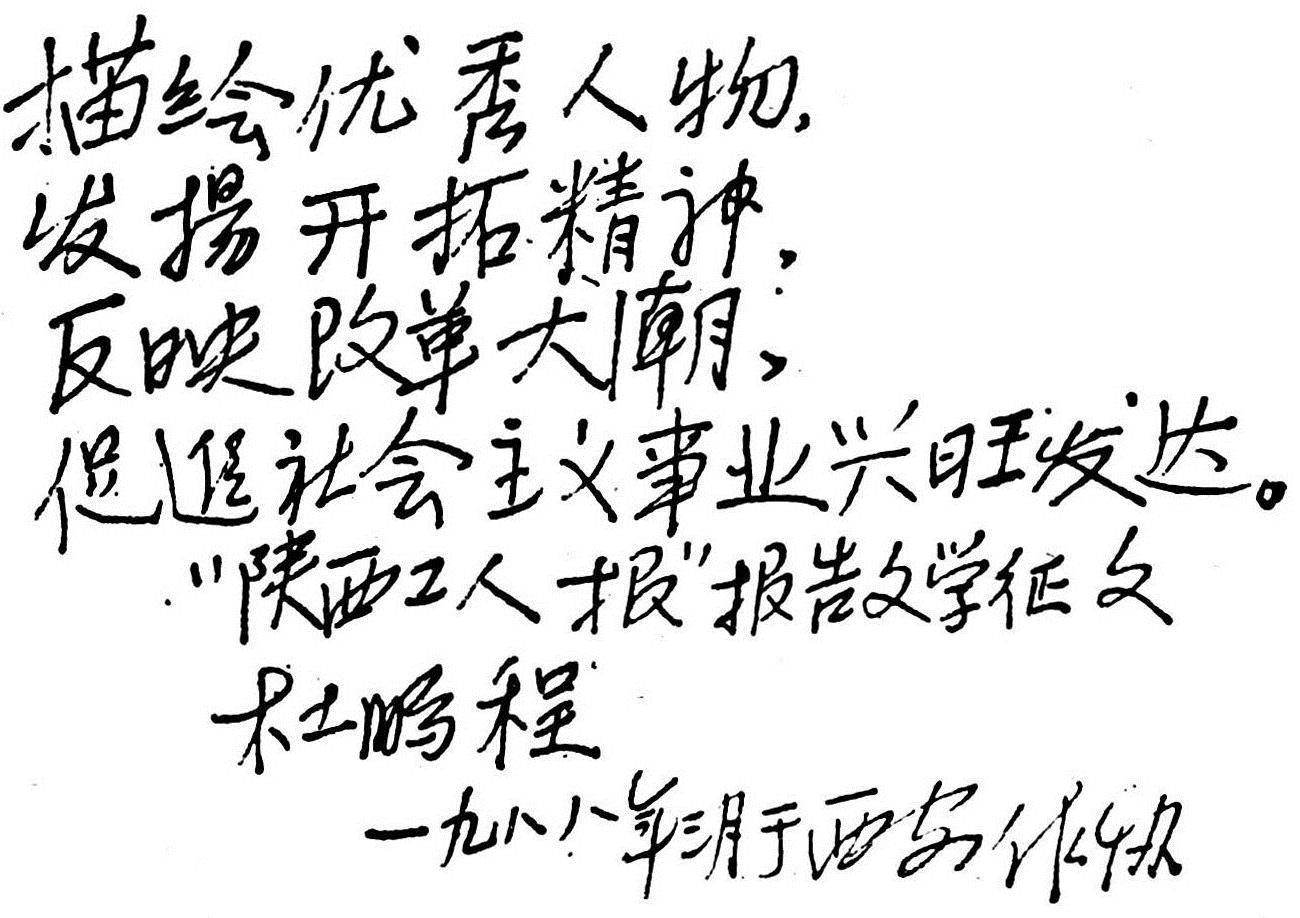 描绘优秀人物,
发揚开拓精神,
反映改革大潮,
促進社会主义事业兴旺发达。
"陕西工人报"报告文学征文
杜鹏程
一九八八年三月于西安作协